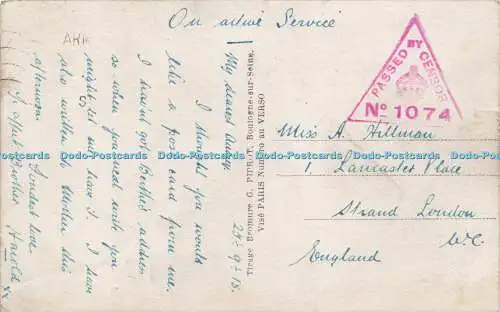 On active Service
PASSED BY CENSOR
No 1074
AHH
25-9-15.
My dearest Audrey
I thought you would
like a post card from me,
I haven't got Bertha's address
so when you next with you
might let me have it. I have
also written to Mother this
afternoon. Fondest love
Yr. affect. Brother Harold
xx
Tirage Bromure G. PIPROT, Boulogne-sur-Seine.
Visé PARIS Numéro au VERSO
Miss A. Hillman
1, Lancaster Place
Strand London
W.C.
England
Dodo-Postcards Dodo-Postcards Dodo-Postcards Dodo-Postcards Dodo-Postcards Dodo-Postcards